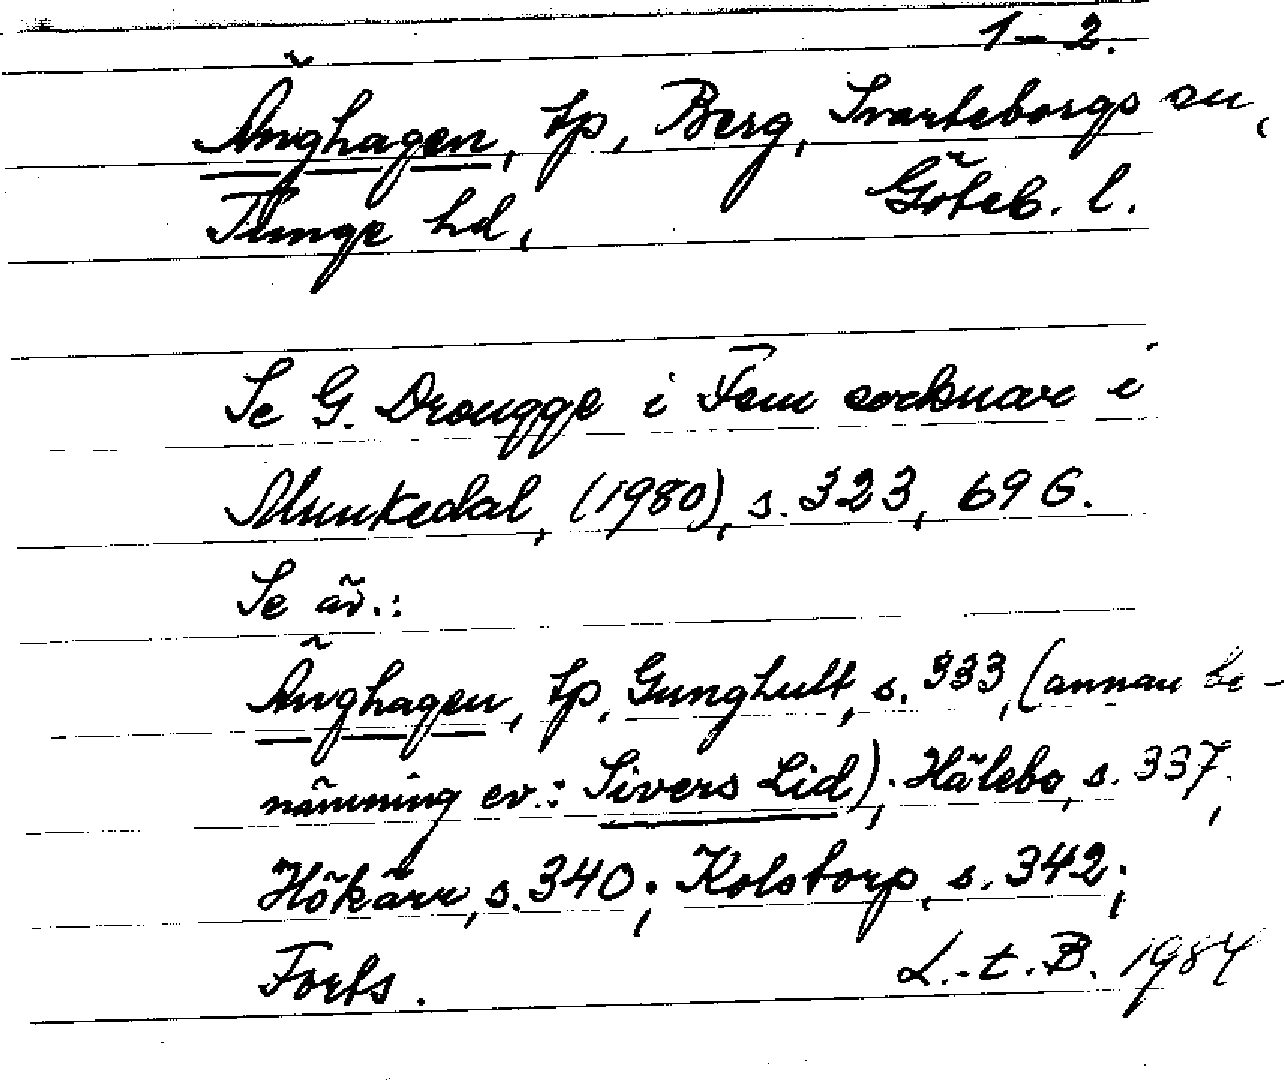 1–2.
Änghagen, tp, Berg, Svarteborgs sn,
Tunge hd, Göteb. l.
Se G. Drougge i Fem socknar i
Munkedal, (1980), s. 323, 696.
Se äv.:
Änghagen, tp, Gunghult, s. 333, (annan be-
nämning ev.: Sivers Lid); Hålebo, s. 337,
Hökärr, s. 340; Kolstorp, s. 342;
Forts. L.-t. B. 1984